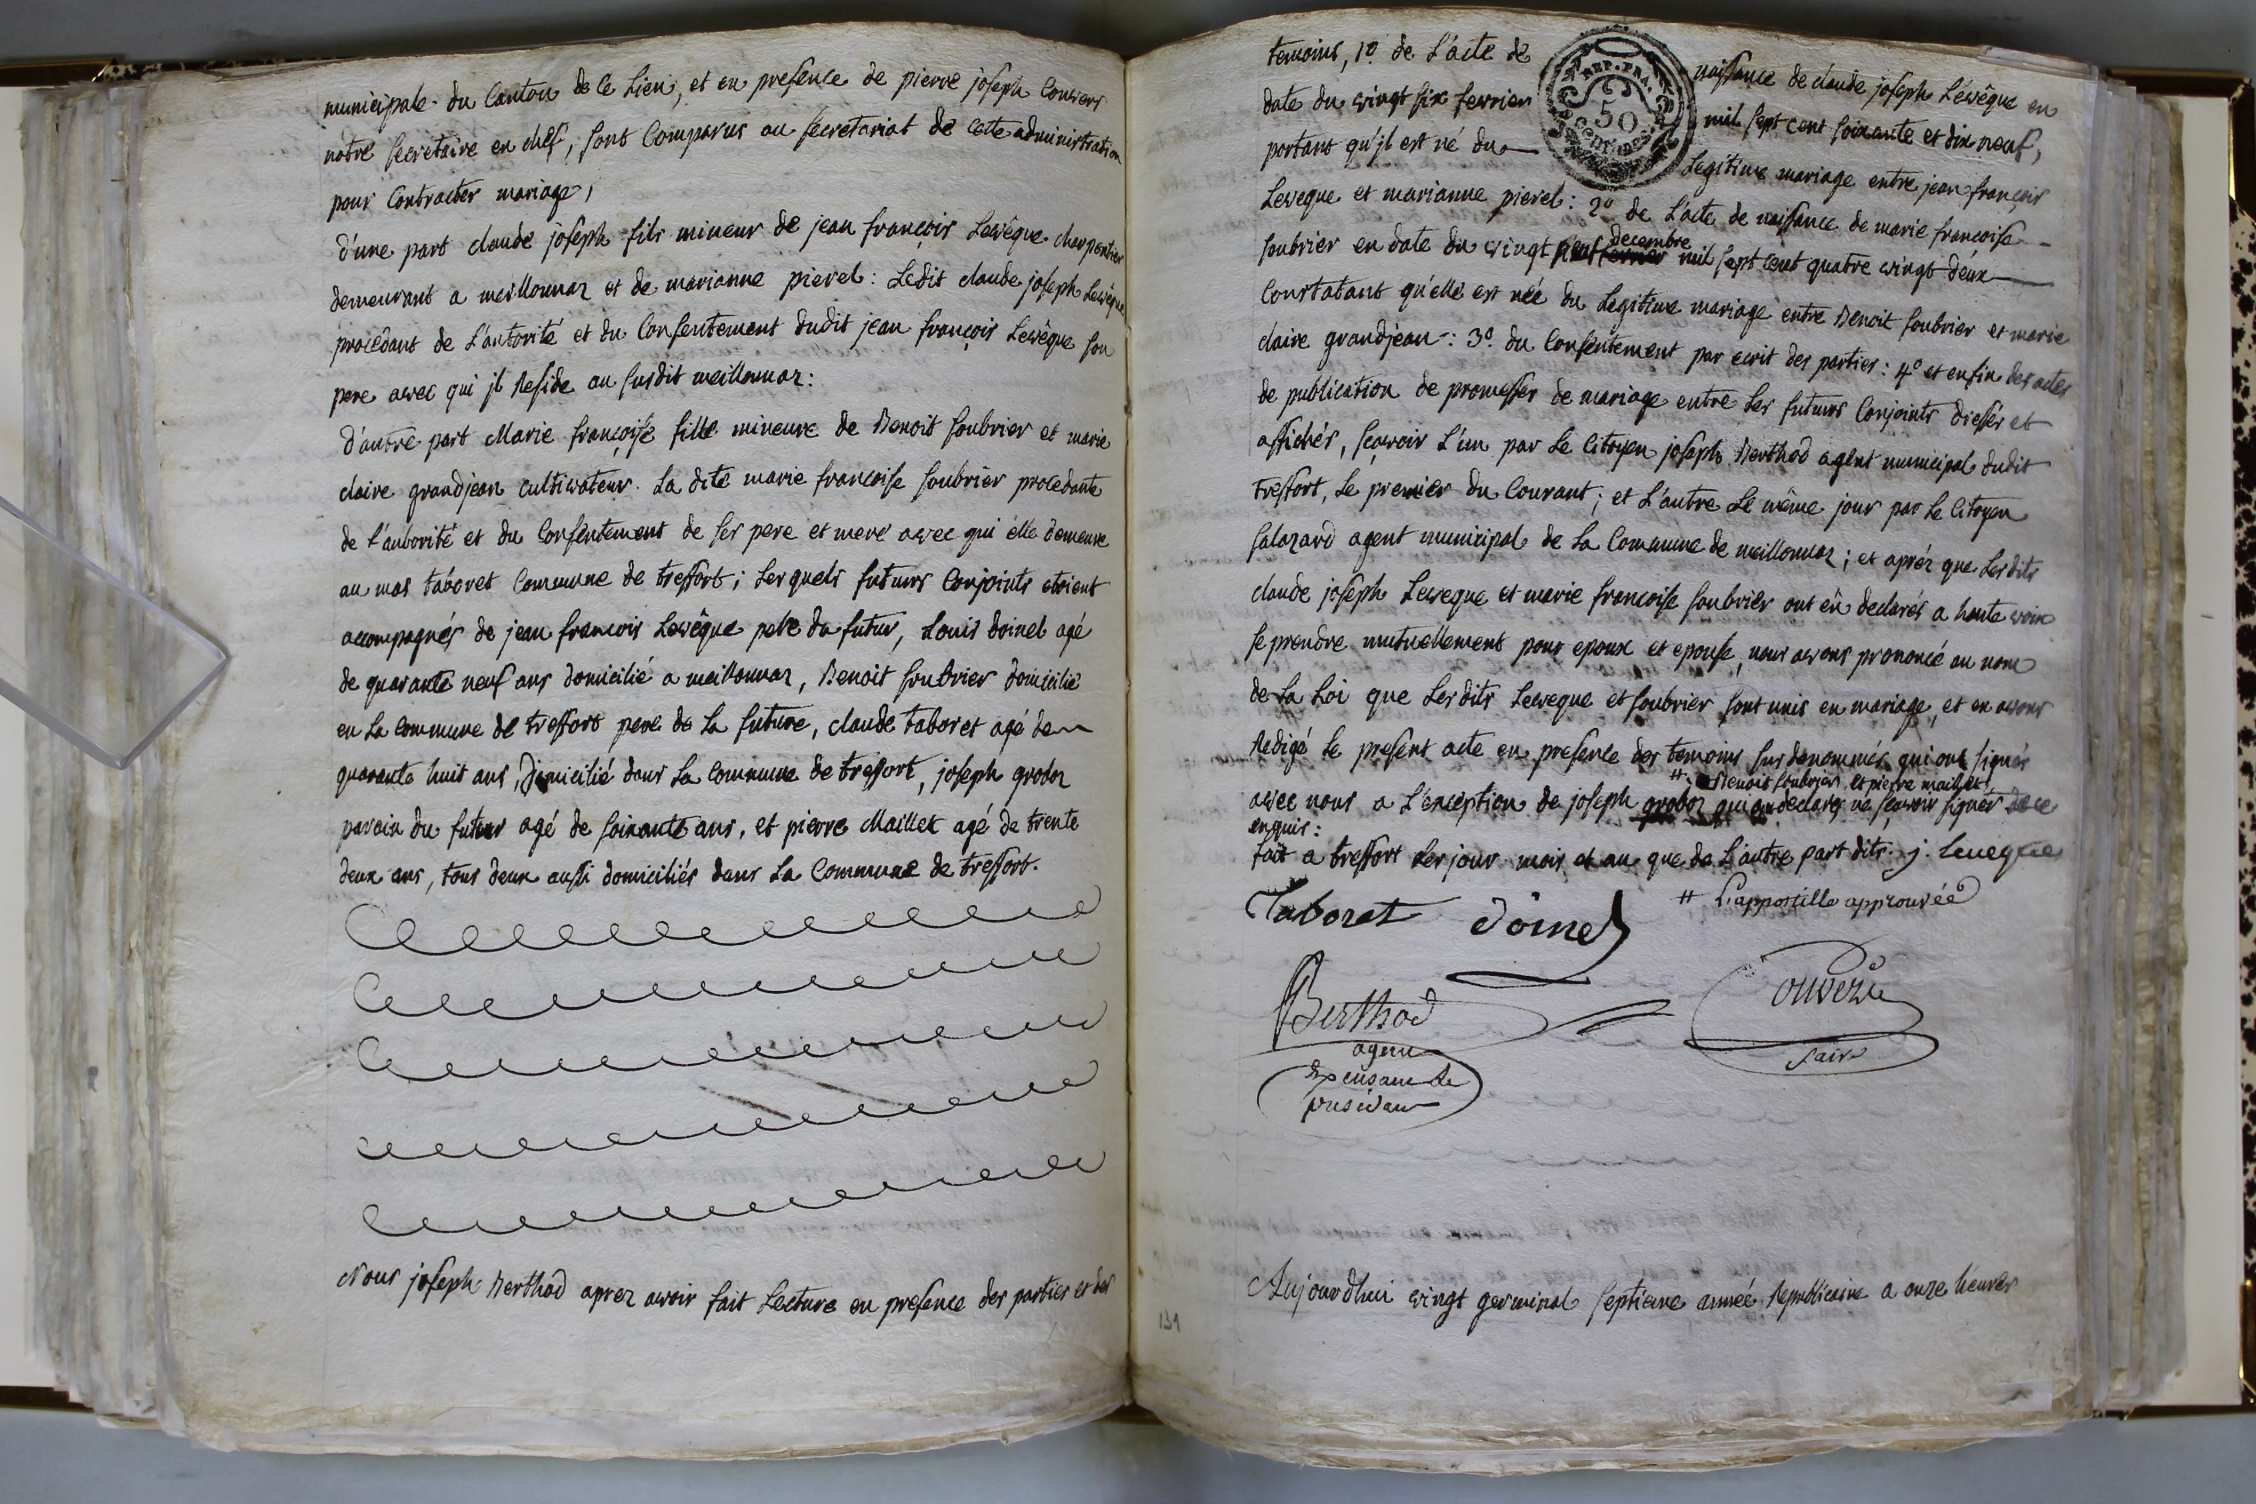 municipale du Canton de Ce Lieu, et en presence de pierre joseph Convers
notre secretaire en chef, sont Comparus au secretariat de Cette administration
pour Contracter mariage,
d'une part claude joseph fils mineur de jean françois Levêque charpentier
demeurant a meillonnaz et de marianne pierel : Ledit claude joseph Levêque
procedant de L'autorité et du Consentement dudit jean françois Levêque son
pere avec qui jl Reside au susdit meillonnaz :
d'autre part Marie françoise fille mineure de Benoit soubrier et marie
claire grandjean cultivateur. La dite marie francoise soubrier procedante
de l'autorité et du Consentement de ses pere et mere avec qui elle demeure
au mas taboret Commune de treffort ; Lesquels futurs Conjoints etoient
accompagnés de jean francois Levêque pere du futur, Louis doinel agé
de quarante neuf ans domicilié a meillonnaz, Benoit soubrier domicilié
en La commune de treffort pere de La future, claude taboret agé de
quarante huit ans, Domicilié dans La Commune de treffort, joseph groboz
parain du futur agé de soixante ans, et pierre Maillet agé de trente
deux ans, tous deux aussi domiciliés dans La Commune de treffort.
Nous joseph Berthod aprez avoir fait Lecture en presence des parties et des
temoins, 1º de L'acte de naissance de claude joseph Levêque en
date du vingt six fevrier mil sept cent soixante et dix neuf,
portant qu'jl est né du Legitime mariage entre jean françois
REP. FRA.
50
CENTIMES
Leveque et marianne pierel : 2º de L'acte de naissance de marie francoise
decembre
soubrier en date du vingt mil sept cent quatre vingt deux
Constatant qu'elle est née du Legitime mariage entre Benoit soubrier et marie
claire grandjean : 3º du Consentement par ecrit des parties : 4º et enfin des actes
de publication de promesses de mariage entre Les futurs Conjoints dressés et
affichés, sçavoir L'un par Le Citoyen joseph Berthod agent municipal dudit
treffort, Le premier du Courant ; et L'autre Le même jour par Le Citoyen
salazard agent municipal de La Commune de meillonnaz ; et apréz que Lesdits
claude joseph Leveque et marie francoise soubrier ont eu declarés a haute voix
se prendre mutuellement pour epoux et epouse, nous avons prononcé au nom
de La Loi que Lesdits Leveque et soubrier sont unis en mariage, et en avons
Redigé Le present acte en presence des temoins susdenommés qui ont signés
# Benoit soubrier et pierre maillet
avec nous a L'exception de joseph groboz qui declaré ne sçavoir signer de ce
enquis :
fait a treffort Les jour mois et an que de L'autre part dits. j. leveque
# L'appostille approuvée
Taboret doinel
Berthod Convers
agent saire
president
Aujourdhui vingt germinal septieme année Republicaine a onze heures
141